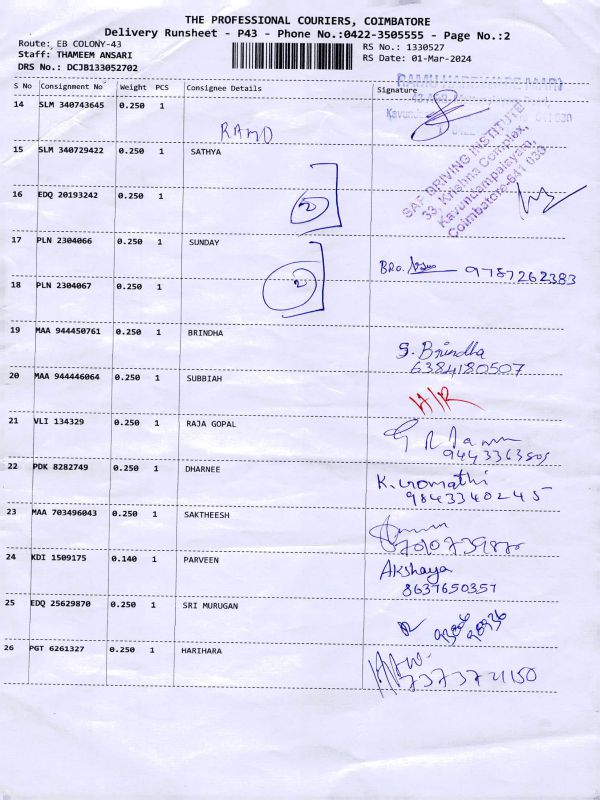 THE PROFESSIONAL COURIERS, COIMBATORE
Delivery Runsheet - P43 - Phone No.:0422-3505555 - Page No.:2
Route: EB COLONY-43
Staff: THAMEEM ANSARI
DRS No.: DCJB133052702
RS No.: 1330527
RS Date: 01-Mar-2024
S No Consignment No Weight PCS Consignee Details Signature
14 SLM 340743645 0.250 1
RAMD
15 SLM 340729422 0.250 1 SATHYA
SAF DRIVING INSTITUTE
33, Krishna Complex,
Kavundampalayam,
Coimbatore-641 030
16 EDQ 20193242 0.250 1
2
17 PLN 2304066 0.250 1 SUNDAY
BRO. 9787262383
18 PLN 2304067 0.250 1
2
19 MAA 944450761 0.250 1 BRINDHA
S. Brindha
6384180507
20 MAA 944446064 0.250 1 SUBBIAH
H/R
21 VLI 134329 0.250 1 RAJA GOPAL
22 PDK 8282749 0.250 1 DHARNEE
K. Gomathi
9843340245
23 MAA 703496043 0.250 1 SAKTHEESH
24 KDI 1509175 0.140 1 PARVEEN
Akshaya
8637650357
25 EDQ 25629870 0.250 1 SRI MURUGAN
26 PGT 6261327 0.250 1 HARIHARA